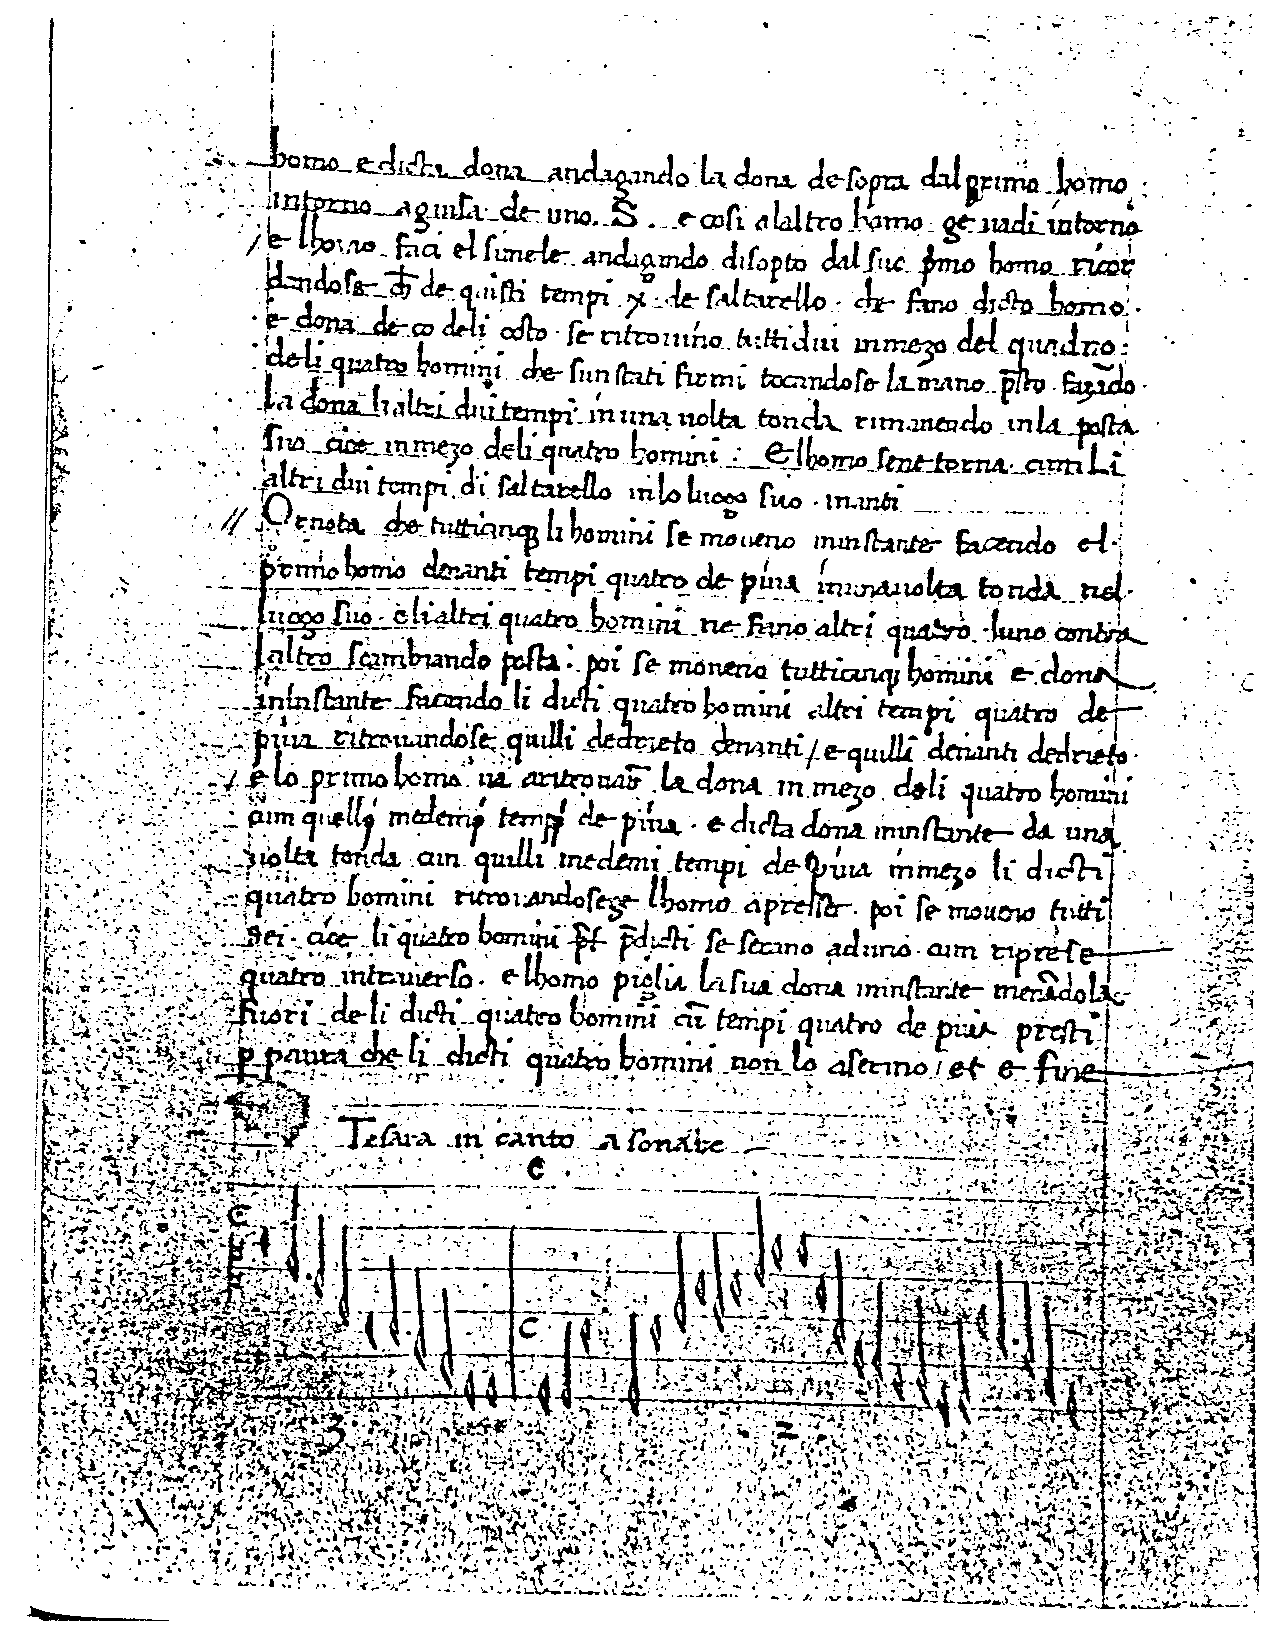 homo e dicta dona andagando la dona de sopra dal primo homo :
intorno a guisa de uno . S . e cosi al altro homo ge vadi intorno
/ e lhomo faci el simele andagando disopto dal suc p̄mo homo ricor
dandose ch̄ de quisti tempi x de saltarello . che fano dicto homo .
e dona de co deli octo . se ritrovino tutti dui in mezo del quadro :
de li quatro homini che sun stati firmi tocandose la mano p̄sto . fazādo .
La dona li altri dui tempi in una volta tonda rimanendo in la posta
sua cioe in mezo de li quatro homini : E lhomo sene torna cum Li
altri dui tempi di saltarello in lo luogo suo . inanti
// Or nota che tutti cinq li homini se moveno in instante facendo el .
primo homo denanti tempi quatro de piva in una volta tonda nel .
luogo suo . e li altri quatro homini ne fano altri quatro . luno contra
laltro scambiando posta : poi se moveno tutti cinq homini e dona
in instante facendo li dicti quatro homini altri tempi quatro de
piva ritrovandose quilli dedrieto denanti / e quilli denanti dedrieto .
/ e lo primo homo va a ritrovar̄ la dona in mezo deli quatro homini
cum quellj medemj tempj de piva . e dicta dona in instante da una
volta tonda cun quilli medemi tempi de piva in mezo li dicti
quatro homini ritrovandosege lhomo apresso . poi se moveno tutti
sei . cioe li quatro homini p̄dicti se serano ad uno cum riprese
quatro intraverso . e lhomo piglia la sua dona in instante menādola
fuori de li dicti quatro homini cū tempi quatro de piva presti
p paura che li dicti quatro homini non lo asermo / et e fine
Tesara in canto a sonare
C
C
3
2